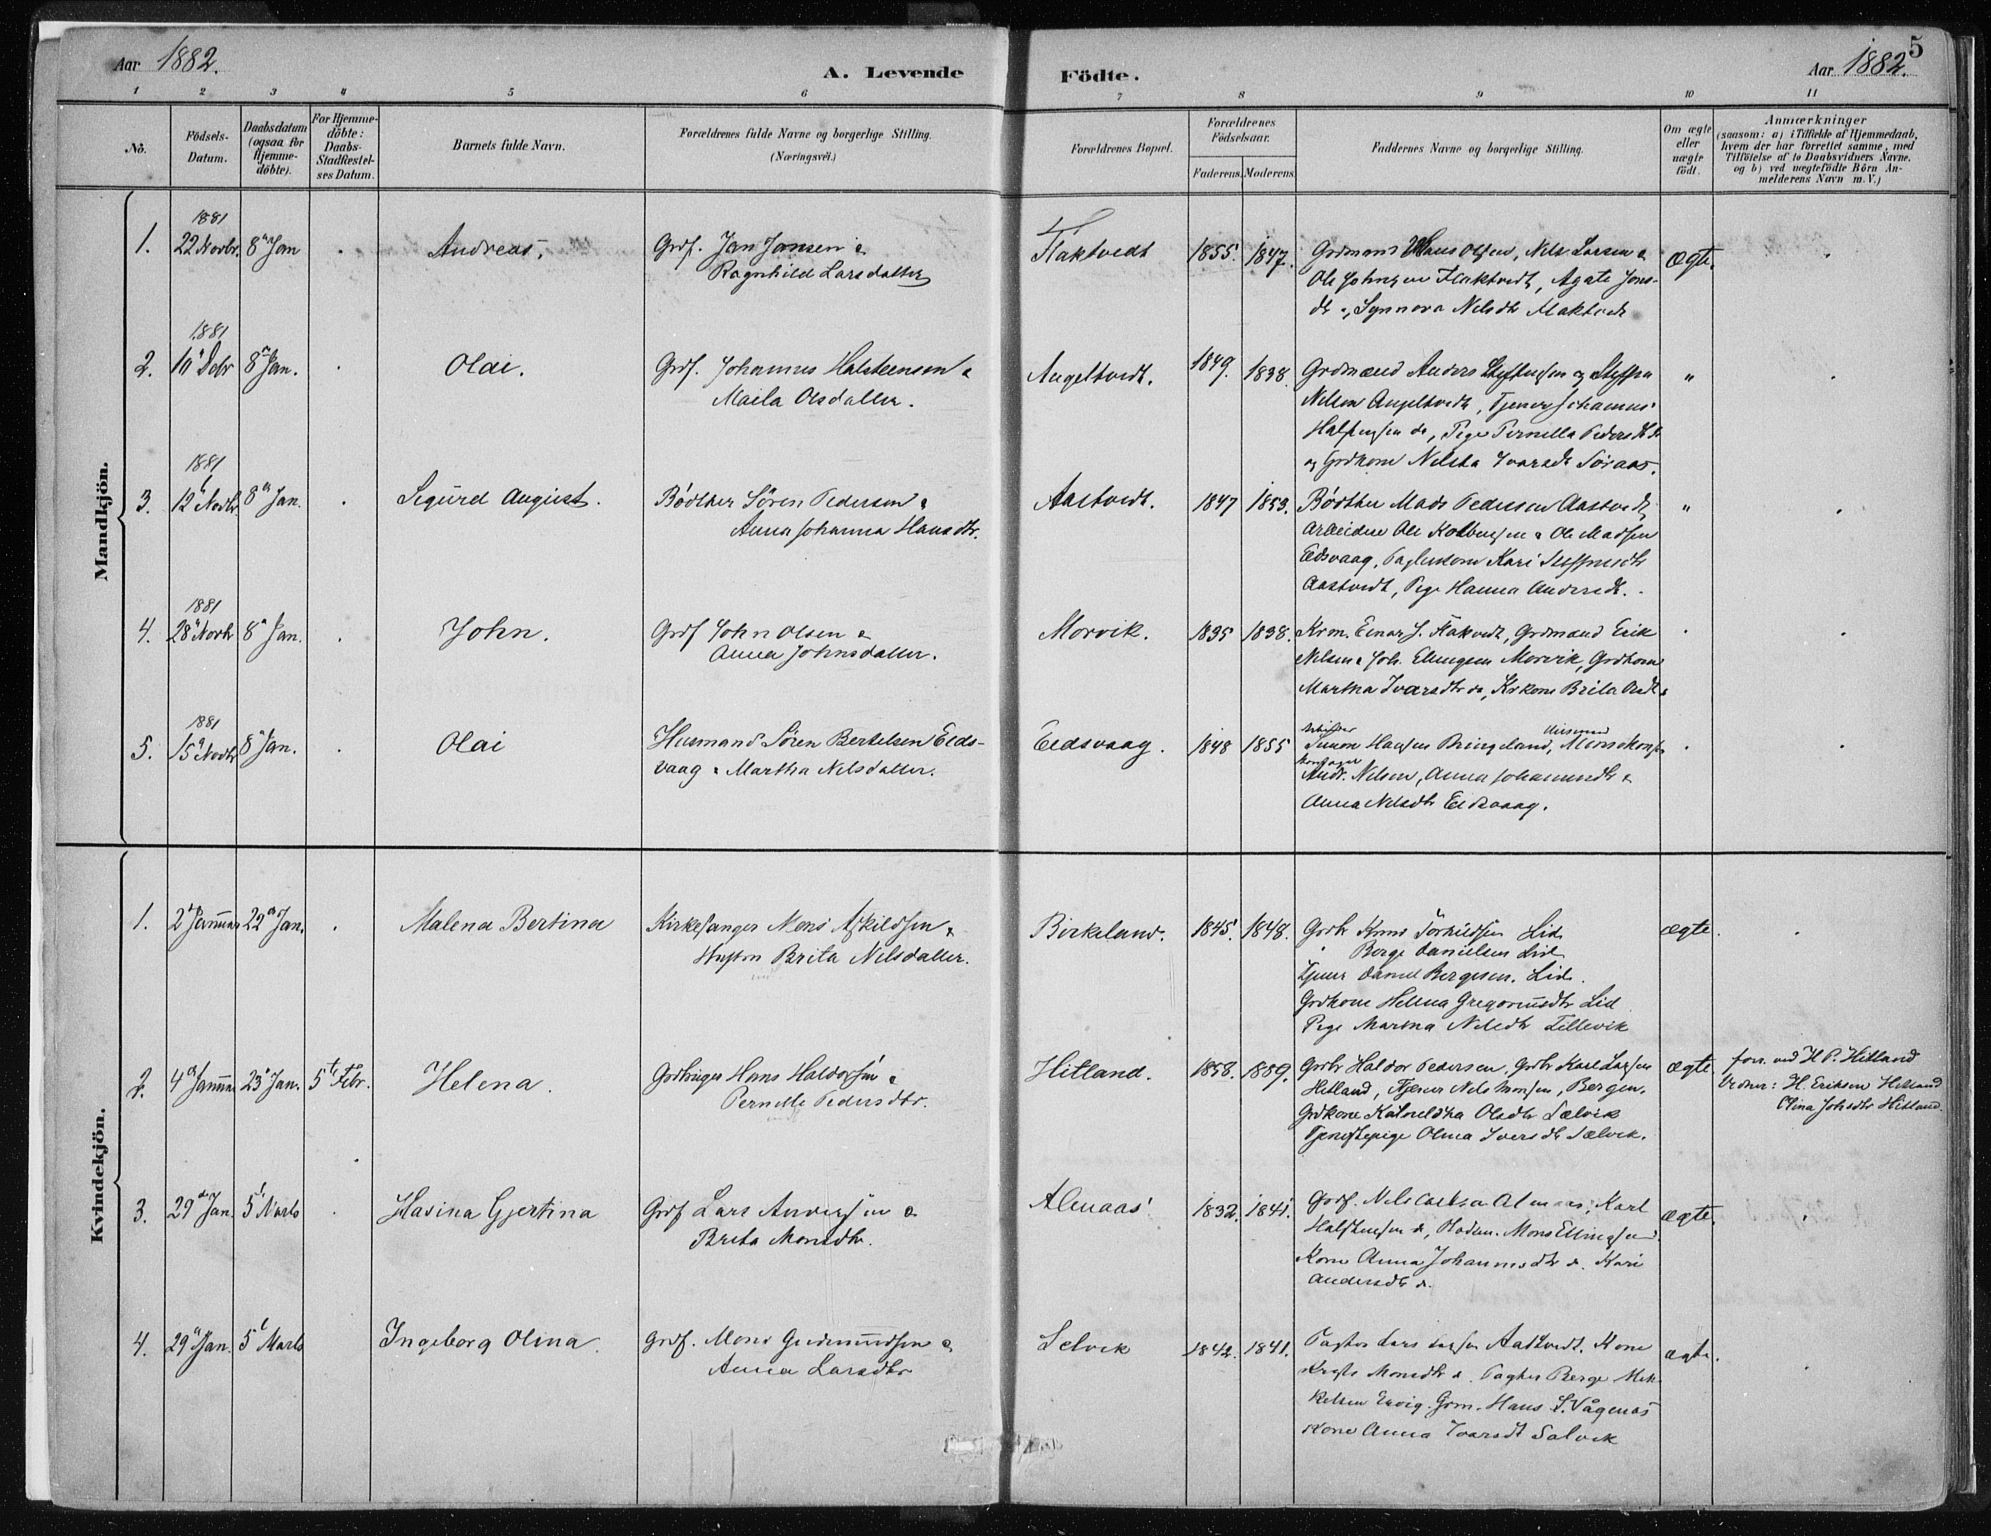 Aar 1882.
A. Levende
Födte.
Aar 1882.
5
1 2 3 4 5 6 7 8 9 10 11
No.
Födsels-
Datum.
Daabsdatum
(ogsaa for
Hjemme-
döbte).
For Hjemme-
döbte:
Daabs-
Stadfæstel-
ses Datum.
Barnets fulde Navn.
Forældrenes fulde Navne og borgerlige Stilling.
(Næringsvei.)
Forældrenes Bopæl.
Forældrenes
Födselsaar.
Faderens. Moderens.
Faddernes Navne og borgerlige Stilling.
Om ægte
eller
uægte
født.
Anmærkninger
(saasom: a) i Tilfælde af Hjemmedaab,
hvem der har forrettet samme, med
Tilföielse af to Daabsvidners Navne.
og b) ved uægtefödte Börn An-
melderens Navn m. V.)
Mandkjön.
1881
1. 22 Novbr. 8 Jan Andreas. Grdf. Jan Jansen &
Ragnhild Larsdatter
Flaktvedt 1855. 1847. Grdmænd Hans Olsen, Nils Larsen &
Ole Johnsen Flaktvedt, Agate Jons-
dtr &, Synnova Nilsdtr Flaktvedt
Ægte.
1881
2. 10 Debr 8 Jan. Olai. Grdf. Johannes Halsteensen &
Maila Olsdatter.
Angeltvedt. 1849. 1838. Grdmænd Anders Steffensen og Steffen
Nilsen Angeltvedt, Tjener Johannes
Halstensen do, Pige Pernilla Pedersdtr do
og Grdkone Nilsta Ivarsdr Søraas.
"
1881
3. 12 Novbr 8 Jan. Sigurd August. Bødtker Sören Pedersen &
Anna Johanna Hansdtr.
Aastvedt. 1847 1853. Bødtker Mads Pedersen Aastvedt,
Arbeidere Ole Kolbensen & Ole Madsen
Eidsvaag, Kari Steffensdtr
Aastvedt, Pige Hanna Andersdt.
"
1881
4. 28 Novbr 8 Jan. John. Grdf John Olsen &
Anna Johnsdatter.
Morvik. 1835 1838. Krm. Einar J. Flakvedt, Grdmænd Erik
Nilsen & Joh. Ellingsen Morvik, Grdkone
Martha Ivarsdtr do, Krkone Brita Olsdt
1881
5. 15 Novbr 8 Jan. Olai Husmand Sören Bertelsen Eids-
vaag & Martha Nilsdatter.
Eidsvaag. 1848 1855 Simon Hansen Bringeland, Husmand
Andr. Nilsen, Anna Johannesdtr &
Anna Nilsdtr Eidsvaag.
Kvindekjön.
1. 2 Januar 22 Jan. Malena Bertina Kirkesanger Mons Askildsen &
Hustru Brita Nilsdatter.
Birkeland. 1845. 1848. Grdbr Knud Torkildsen Lid
Berge Danielsen Lid
Tjener Daniel Bergesen. Lid.
Grdkone Helena Gregoriusdtr Lid
Pige Martha Nilsdtr Tellevik
ægte.
2. 4 Januar 23 Jan. 5te Febr. Helena. Gdbruger Hans Haldorsen &
Pernille Pedersdtr.
Hitland. 1858. 1859. Grdbr Haldor Pedersen, Grdbr Karl Larsen
Hitland, Tjener Nils Monsen, Bergen.
Grdkone Katnildha Olsdtr Sælvik
Tjenestepige Olina Iversdtr Sælvik.
ægte. forr. ved H P. Hitland
Vidner: H. Eriksen Hitland
Olina Johsdtr Hitland.
3. 29 Jan. 5 Marts Hasina Gjertina Grdf Lars Andersen &
Brita Monsdtr.
Almaas 1832. 1841. Grdf. Nils Larsen Almaas, Karl
Halstensen do, Mons Ellingsen
Kone Anna Johannesdtr do. Kari
Andersdtr do.
ægte.
4. 29 Jan. 5 Marts Ingeborg Olina. Grdf. Mons Gudmundsen &
Anna Larsdtr
Selvik 1842. 1841. Pagter Lars Larsen Aastvedt. Kone
Monsdtr do. Pagter Berge Mik-
kelsen Ervig. Grm. Hans S. Vågenæs
Kone Anna Ivarsdt Salvik
ægte.